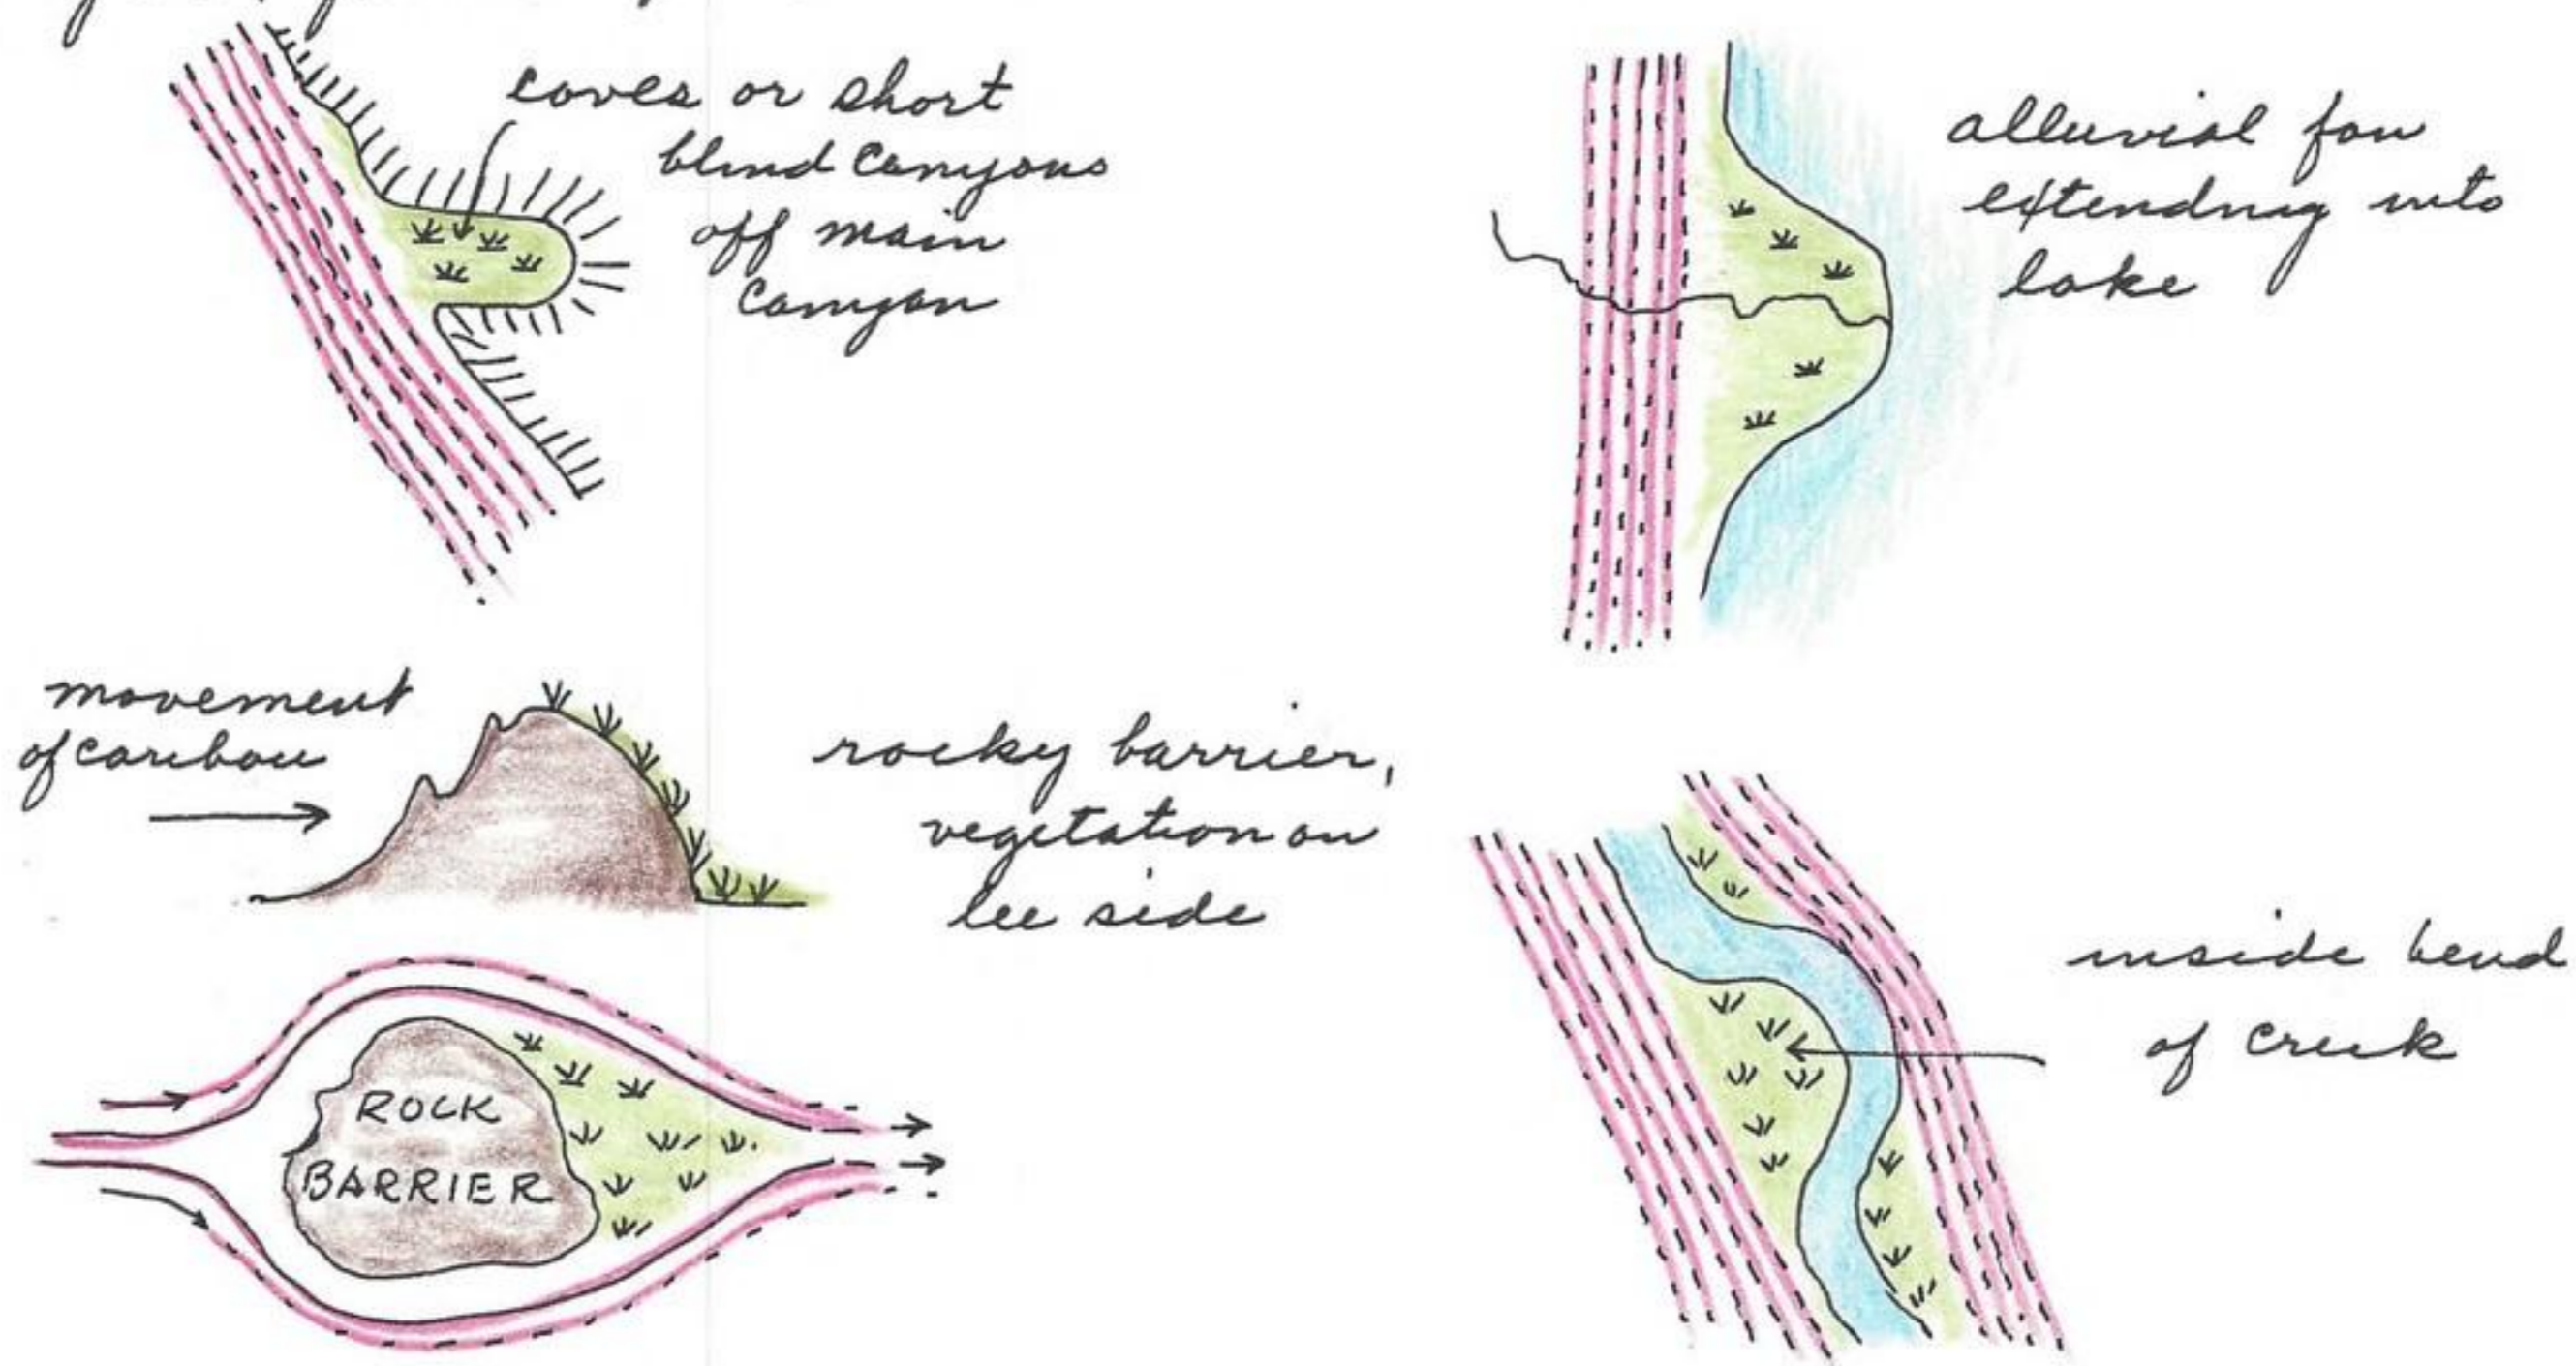 coves or short
blind canyons
off main
canyon
alluvial fan
extending into
lake
movement
of caribou
rocky barrier,
vegetation on
lee side
ROCK
BARRIER
inside bend
of creek